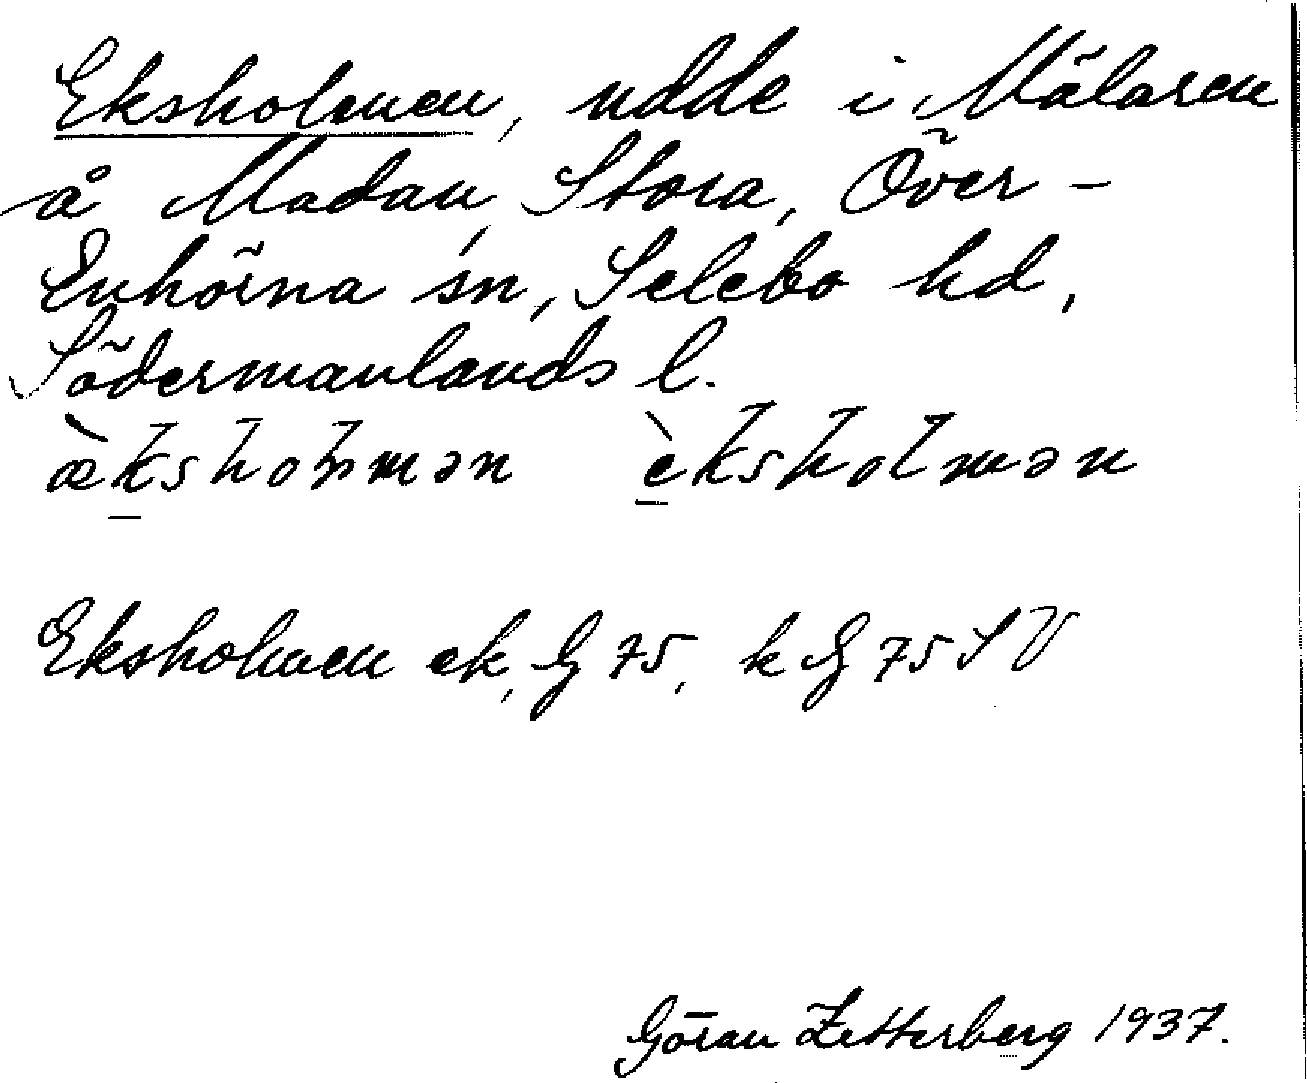 Eksholmen, udde i Mälaren
å Madan, Stora, Över-
Enhörna sn, Selebo hd,
Södermanlands l.
æ̀ksholmən èksholmən
Eksholmen ek, G 75, k G 75 SV
Göran Zetterberg 1937.